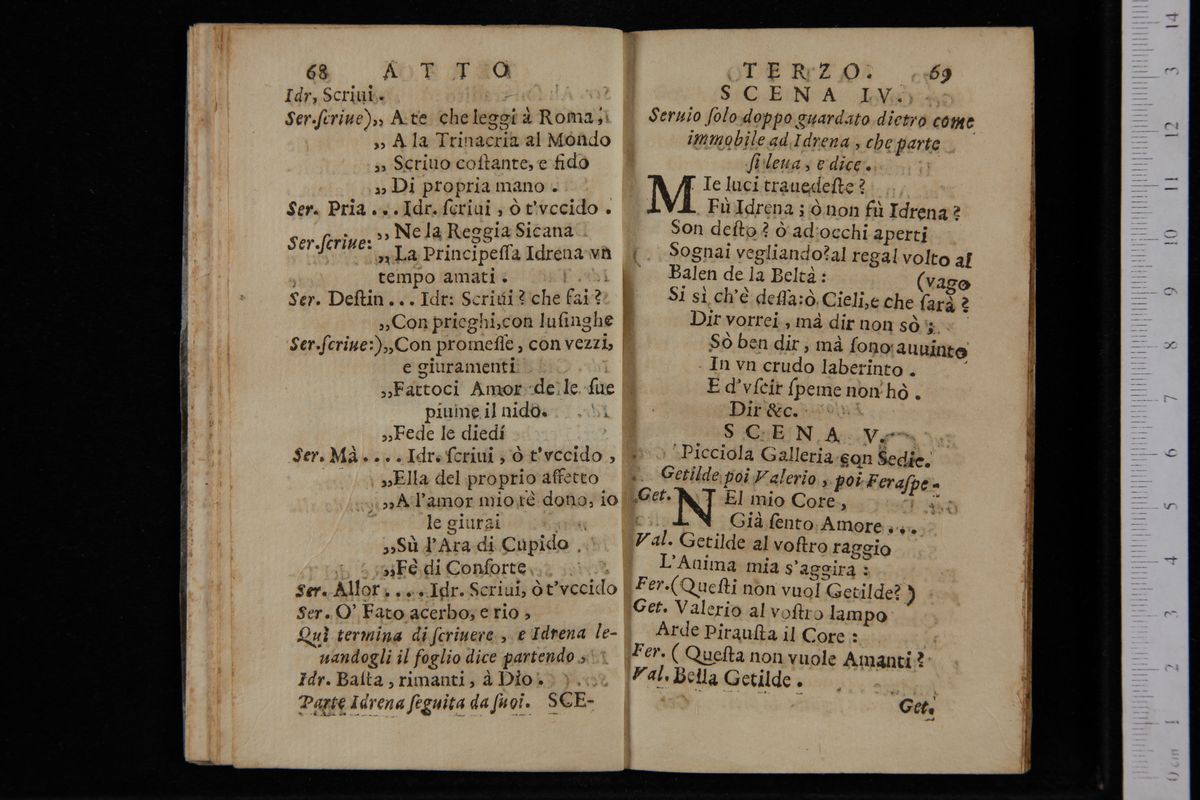 68 ATTO
Idr, Scriui.
Ser.ſcriue),, A te che leggi à Roma,
,, A la Trinacria al Mondo
,, Scriuo coſtante, e fido
,, Di propria mano .
Ser. Pria ... Idr. ſcriui , ò t'vccido .
Ser.ſcriue: ,, Ne la Reggia Sicana
,, La Principeſſa Idrena vn
tempo amati .
Ser. Deſtin ... Idr: Scriui ? che fai ?
,,Con prieghi,con luſinghe
Ser.ſcriue:),,Con promeſſe, con vezzi,
e giuramenti
,,Fattoci Amor de le ſue
piume il nido.
,,Fede le diedi
Ser. Mà .... Idr. ſcriui , ò t'vccido ,
,,Ella del proprio affetto
,,A l'amor mio fè dono, io
le giurai
,,Sù l'Ara di Cupido
,,Fè di Conſorte
Ser. Allor .... Idr. Scriui, ò t'vccido
Ser. O' Fato acerbo, e rio ,
Quì termina di ſcriuere , e Idrena le-
uandogli il foglio dice partendo ,
Idr. Baſta , rimanti , à Dio .
Parte Idrena ſeguita da ſuoi. SCE-
TERZO. 69
SCENA IV.
Seruio ſolo doppo guardato dietro come
immobile ad Idrena , che parte
ſi leua , e dice .
MIe luci trauedeſte ?
Fù Idrena ; ò non fù Idrena ?
Son deſto ? ò ad occhi aperti
Sognai vegliando?al regal volto al
Balen de la Beltà : (vago
Si sì ch'è deſſa:ò Cieli,e che ſarà ?
Dir vorrei , mà dir non sò ;
Sò ben dir , mà ſono auuinto
In vn crudo laberinto .
E d'vſcir ſpeme non hò .
Dir &c.
SCENA V.
Picciola Galleria con Sedie.
Getilde poi Valerio , poi Feraſpe.
Get. NEl mio Core ,
Già ſento Amore ...
Val. Getilde al voſtro raggio
L'Anima mia s'aggira :
Fer.(Queſti non vuol Getilde? )
Get. Valerio al voſtro lampo
Arde Pirauſta il Core :
Fer. ( Queſta non vuole Amanti ?
Val. Bella Getilde .
Get.
0 cm 1 2 3 4 5 6 7 8 9 10 11 12 3 14